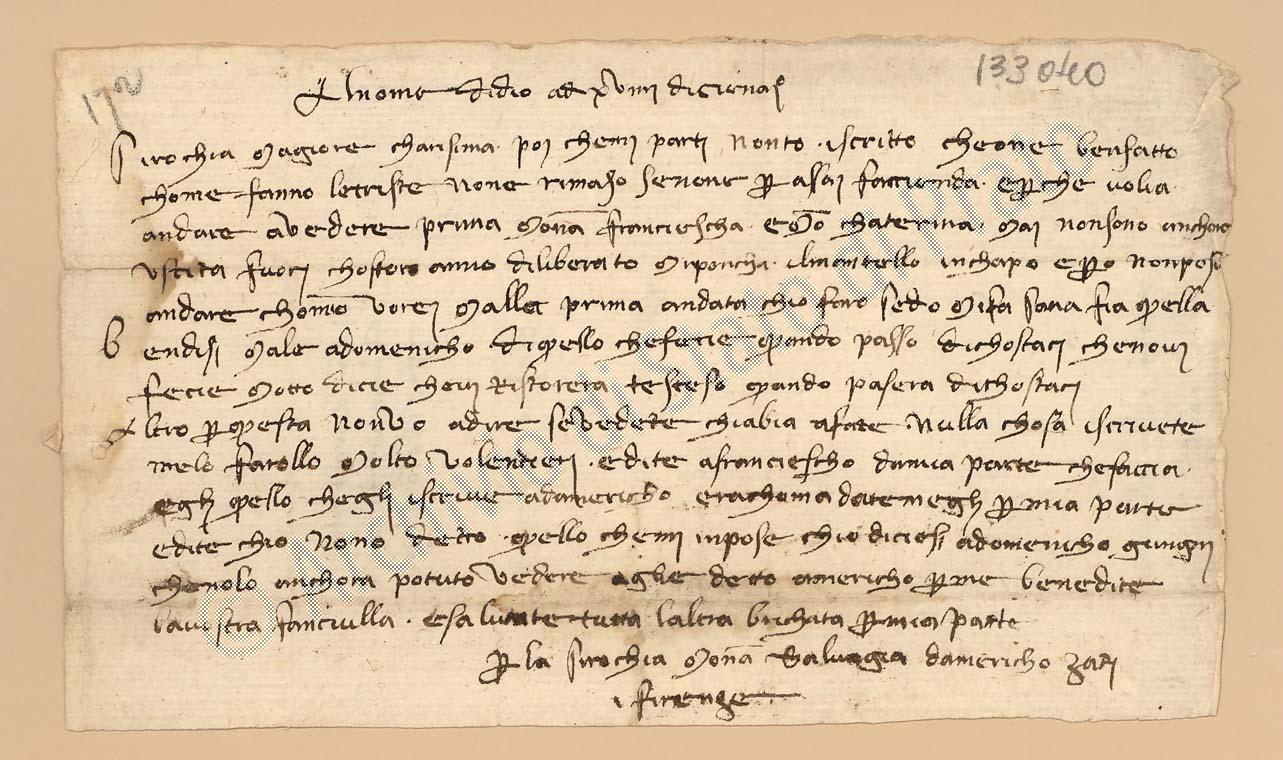 133040
Al nome didio adi xviiii digienaio
Sirochia magiore charisima poi chemi parti nonto iscritto cheone benfatto
chome fanno letriste none rimaso senone per assai faccienda e perche volia
andare avedere prima mona franciescha e mona chaterina mai nonsono anchora
uscita fuori chostoro anno diliberato mi poncha ilmantello inchapo e pero nonposo
andare chome vorei malla prima andata chio faro sedo mifa sana fia quella
bendisi male adomenicho di quello chefecie quando passo dichostaci chenovi
fecie motto dicie chevi ristorera testeso quando pasera dichostaci
Altro per questa nonvo adire sevedete chiabia afare nulla chosa iscrivete
melo farollo molto volentieri edite afranciescho damia parte chefaccia
egli quello chegli iscrive adamericho erachomadatemegli per mia parte
edite chio nono detto quello chemi inpose chio diciesi adomenicho giungni
chenolo anchora potuto vedere aglie detto americho per me benedite
lavostra fanciulla esalutate tutta laltra brichata per mia parte
per la sirochia mona Salvagia damericho zati
i firenze